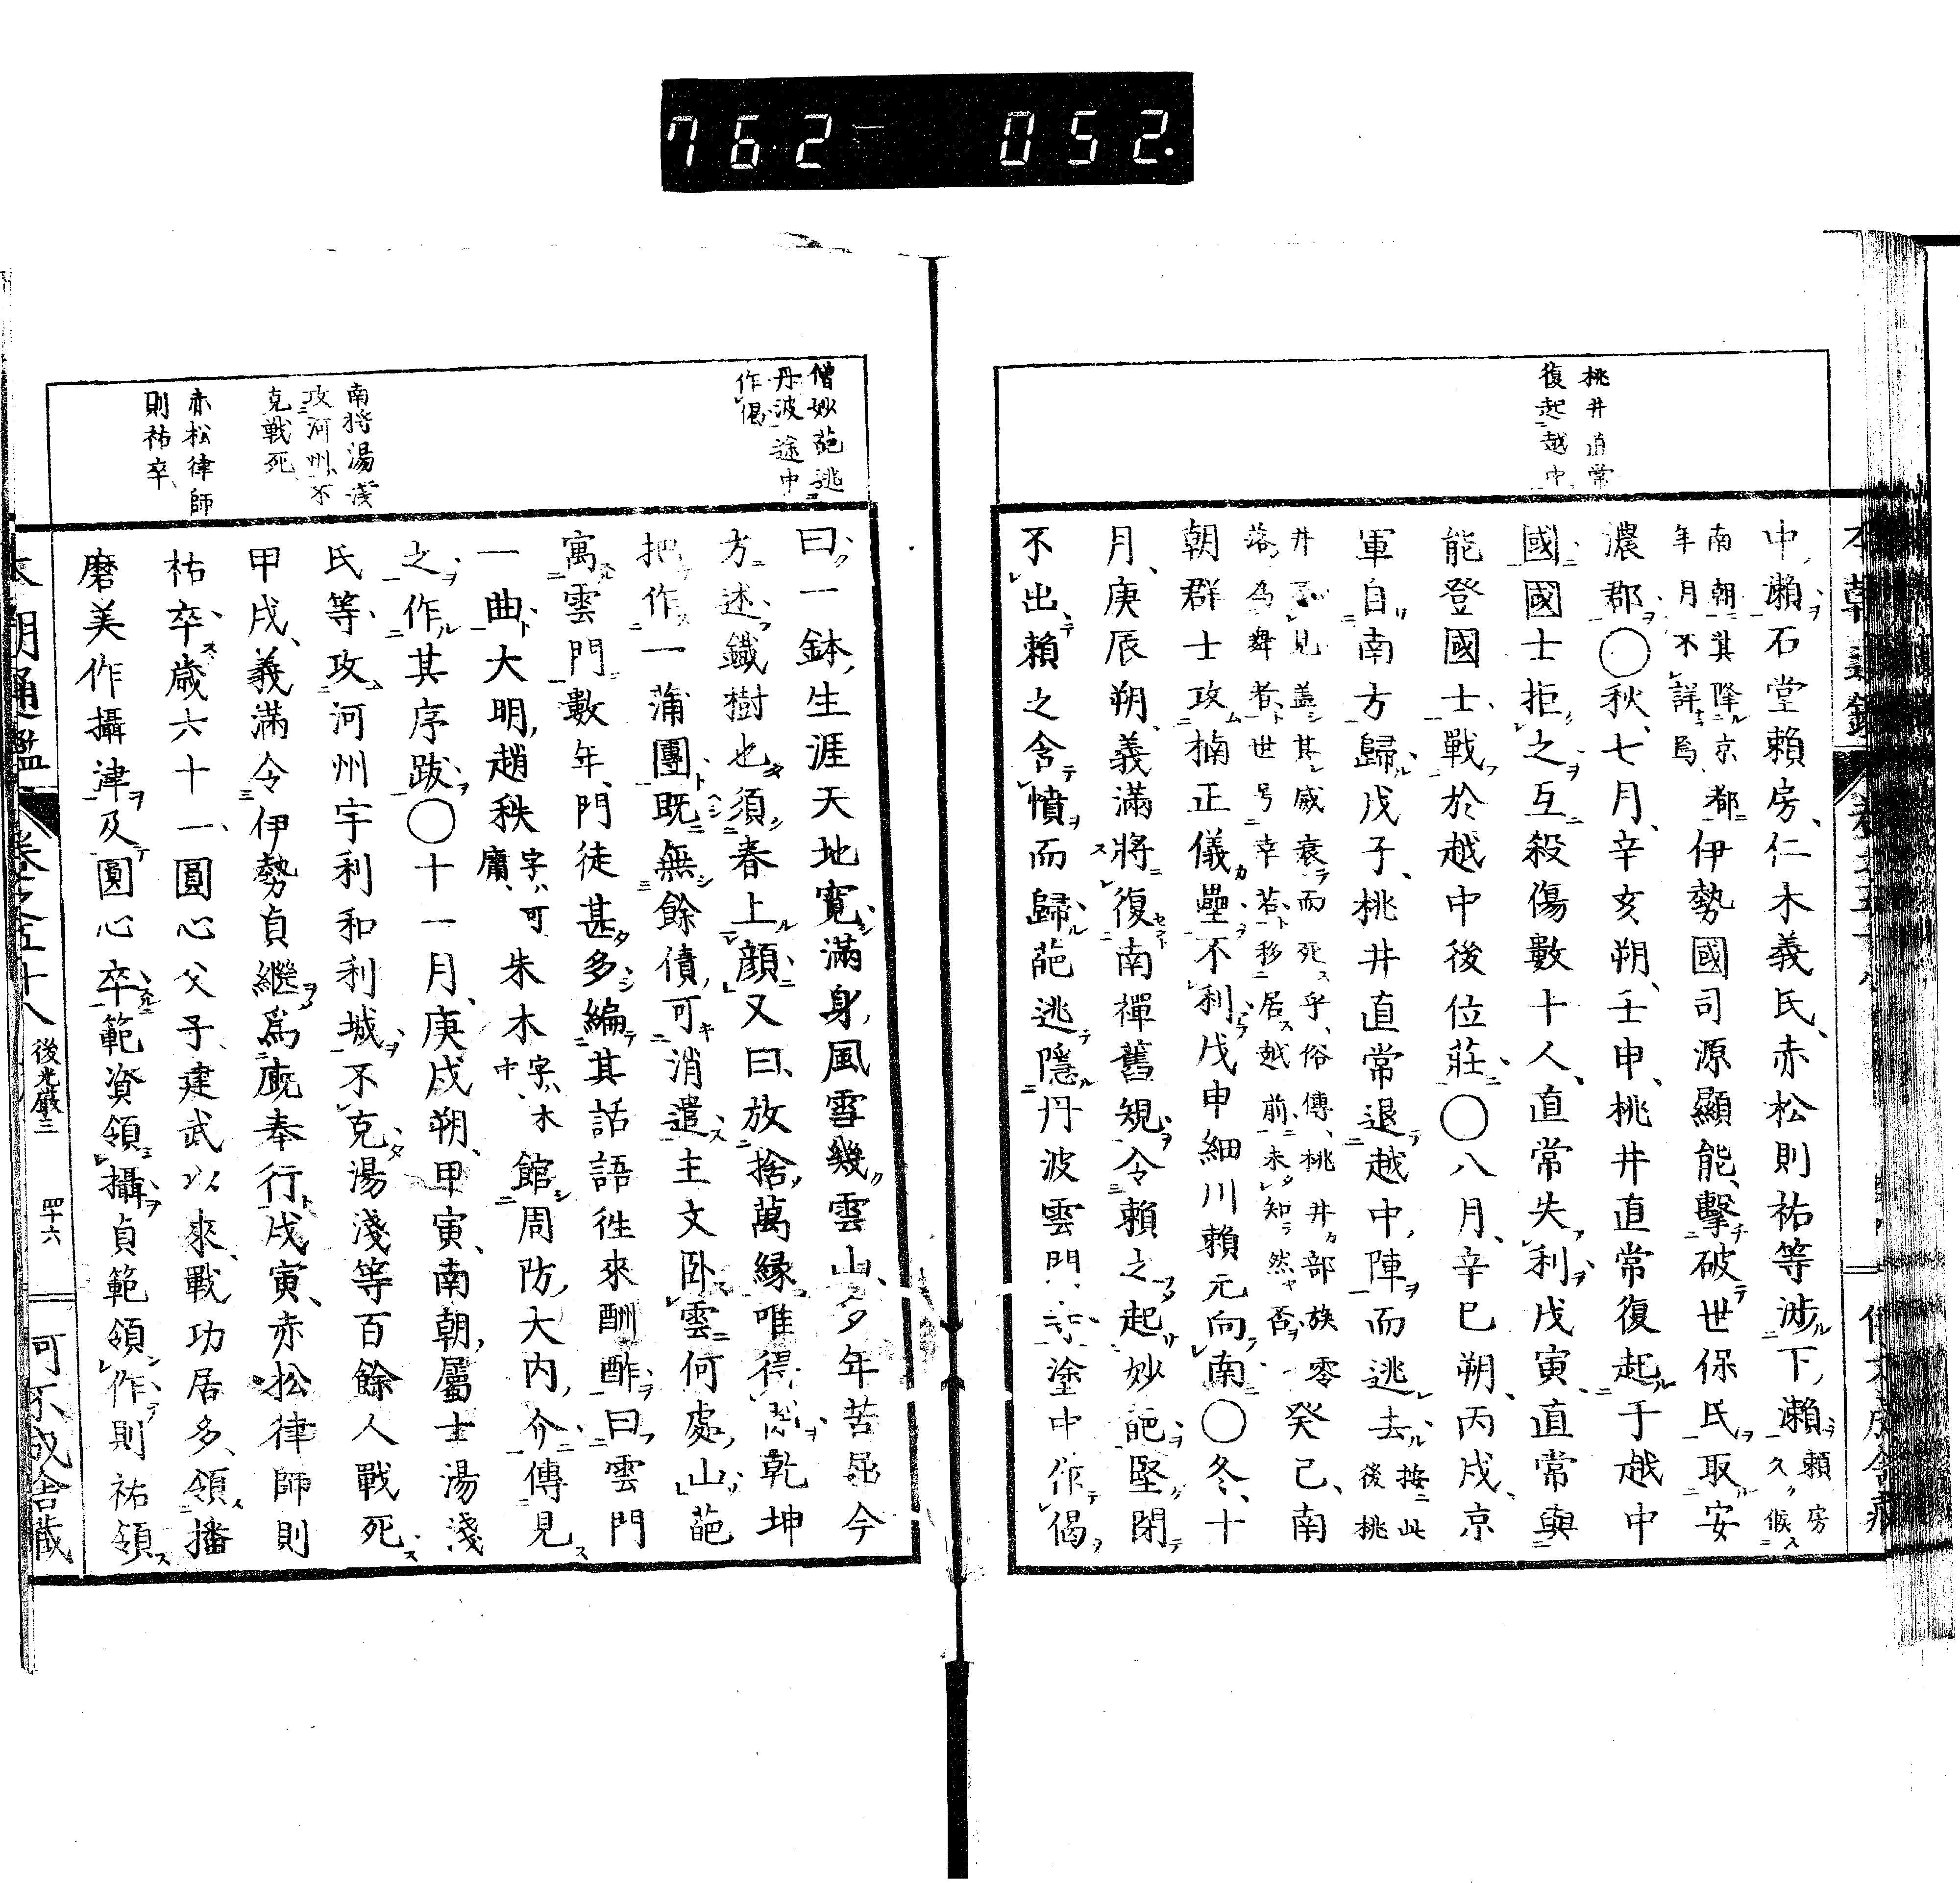 762- 052.
桃井直常
復起越中
中瀬石堂賴房仁木義氏赤松則祐等渉下瀬賴房久候
南朝其降京都年月不詳焉伊勢國司源顯能擊破世保氏取安
濃郡〇秋七月辛亥朔壬申桃井直常復起于越中
國國士拒之互殺傷數十人直常失利戊寅直常與
能登國士戰於越中後位莊〇八月辛巳朔丙戌京
軍自南方歸戊子桃井直常退越中陣而逃去按此後桃
井不見盖其威衰而死乎俗傳桃井部族零落為舞者世号幸若移居越前未知然否癸己南
朝群士攻楠正儀壘不利戊申細川賴元向南〇冬十
月庚辰朔義滿將復南禪舊規令賴之起妙葩堅閉
不出賴之含憤而歸葩逃隱丹波雲門塗中作偈
僧妙葩逃
丹波途中
作偈
南將湯淺
攻河州不
克戰死
赤松律師
則祐卒
曰一鉢生涯天地寬滿身風雪幾雲山多年苦屈今
方述鐵樹也須春上顏又曰放捨萬緣唯得閑乾坤
把作一蒲團既無餘債可消遣主文卧雲何處山葩
寓雲門數年門徒甚多編其話語徃來酬酢曰雲門
一曲大明趙秩字可庸朱木字木中館周防大内介傳見
之作其序跋〇十一月庚戌朔甲寅南朝屬士湯淺
氏等攻河州宇利和利城不克湯淺等百餘人戰死
甲戌義滿令伊勢貞繼爲廐奉行戊寅赤松律師則
祐卒歳六十一圓心父子建武以來戰功居多領播
磨美作攝津及圓心卒範資領攝貞範領作則祐領
本朝通鑑 卷之五十八 後光嚴三 四十六 可不成舎藏